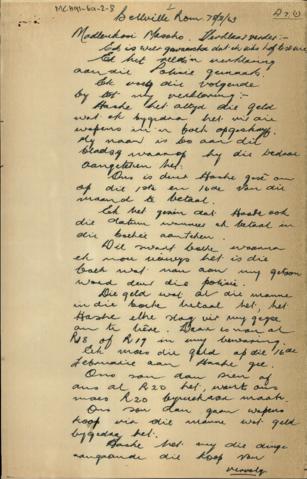 MCH91-6a-2-8
1
Bellville Rom. 78/2/63
Madlenkosi Mascho. Verklaar verder:-
Ek is weer gewaarsku dat ek nie hof toe nie
Ek het reeds 'n verklaring
aan die Polisie gemaak.
Ek voeg die volgende
by tot my verklaring:-
Hashe het altyd die geld
wat ek bygedra het vir die
wapens in 'n boek opgeskryf.
My naam is bo aan die
bladsy waarop hy die bedrae
aangeteken het.
Ons is deur Hashe gesê om
op die 1ste en 16de van die
maand te betaal.
Ek het gesien dat Hashe ook
die datum wanneer ek betaal in
die boekie aanteken.
Die swart boekie waarna
ek nou verwys het is die
boek wat nou aan my getoon
word deur die polisie.
Die geld wat al die manne
in die boekie betaal het, het
Hashe elke slag vir my gegee
om te bêre. Daar is nou al
R18 of R19 in my bewaring.
Ek moes die geld op die 16de
Februarie aan Hashe gee.
Ons sou dan sien of
ons al R20 het, want ons
moes R20 bymekaar maak.
Ons sou dan gaan wapens
koop vir die manne wat geld
bygedra het.
Hashe het my die dinge
aangaande die koop van
vervolg